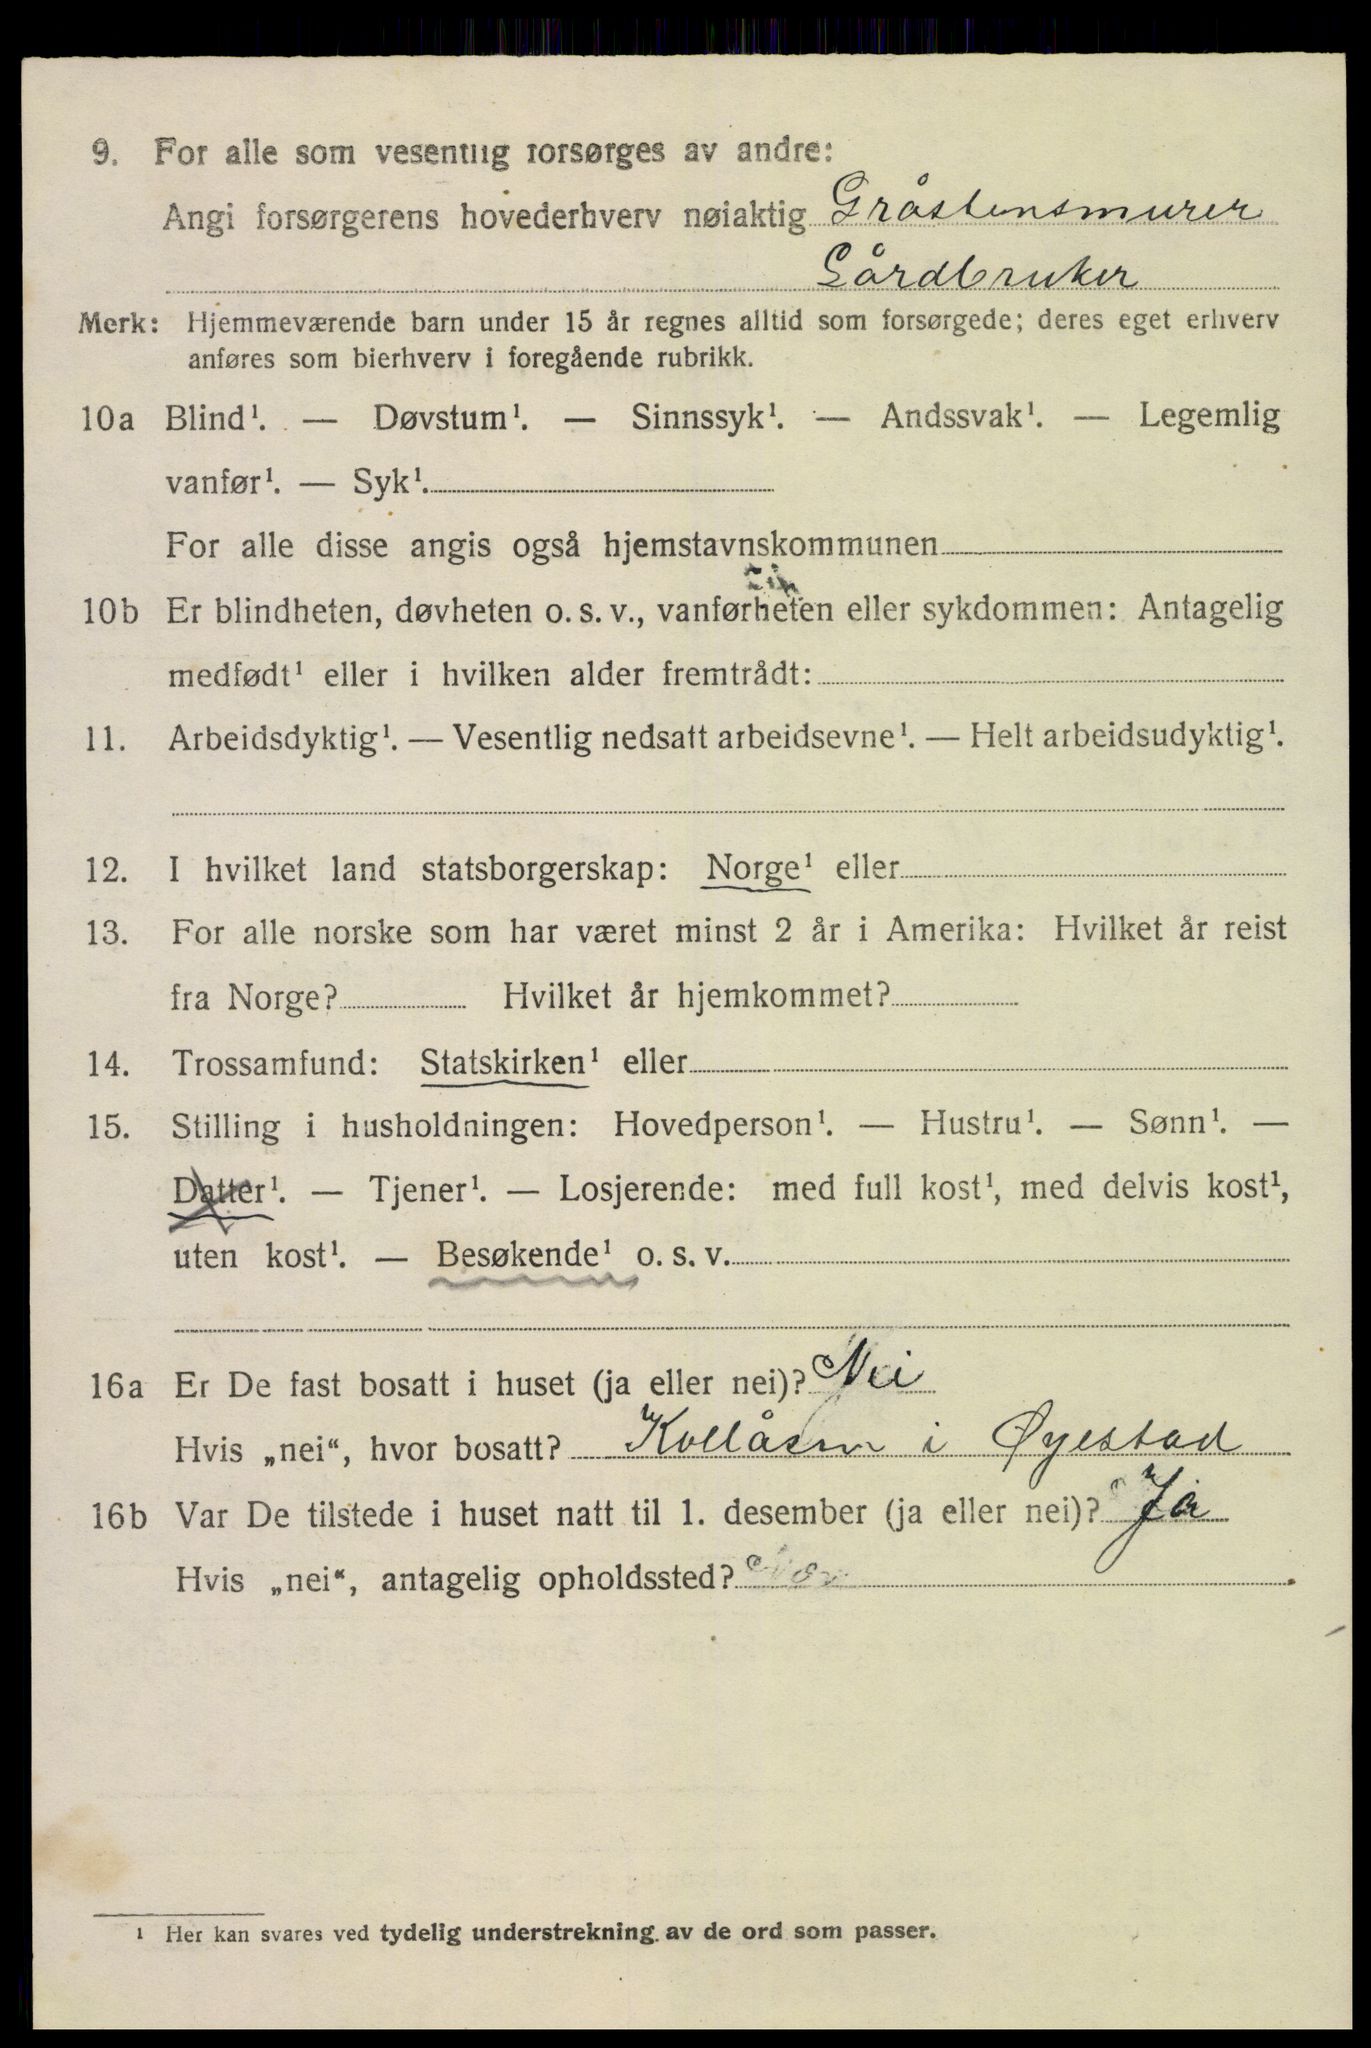 9. For alle som vesentlig forsørges av andre:
Angi forsørgerens hovederhverv nøiaktig Gråstensmurer
Gårdbruker
Merk: Hjemmeværende barn under 15 år regnes alltid som forsørgede; deres eget erhverv
anføres som bierhverv i foregående rubrikk.
10a Blind¹. — Døvstum¹. — Sinnssyk¹. — Andssvak¹. — Legemlig
vanfør¹. — Syk¹.
For alle disse angis også hjemstavnskommunen
10b Er blindheten, døvheten o. s. v., vanførheten eller sykdommen: Antagelig
medfødt¹ eller i hvilken alder fremtrådt:
11. Arbeidsdyktig¹. — Vesentlig nedsatt arbeidsevne¹. — Helt arbeidsudyktig¹.
12. I hvilket land statsborgerskap: Norge¹ eller
13. For alle norske som har været minst 2 år i Amerika: Hvilket år reist
fra Norge? Hvilket år hjemkommet?
14. Trossamfund: Statskirken¹ eller
15. Stilling i husholdningen: Hovedperson¹. — Hustru¹. — Sønn¹. —
Datter¹. — Tjener¹. — Losjerende: med full kost¹, med delvis kost¹,
uten kost¹. — Besøkende¹ o. s. v.
16a Er De fast bosatt i huset (ja eller nei)? Nei
Hvis „nei“, hvor bosatt? i Øyestad
16b Var De tilstede i huset natt til 1. desember (ja eller nei)? Ja
Hvis „nei“, antagelig opholdssted?
¹ Her kan svares ved tydelig understrekning av de ord som passer.